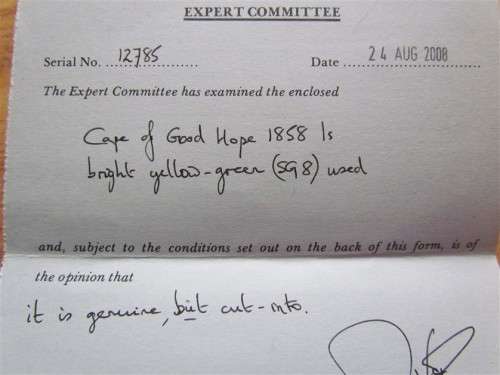 EXPERT COMMITTEE
Serial No. 12785 Date 24 AUG 2008
The Expert Committee has examined the enclosed
Cape of Good Hope 1858 1s
bright yellow-green (SG8) used
and, subject to the conditions set out on the back of this form, is of
the opinion that
it is genuine, but cut-into.